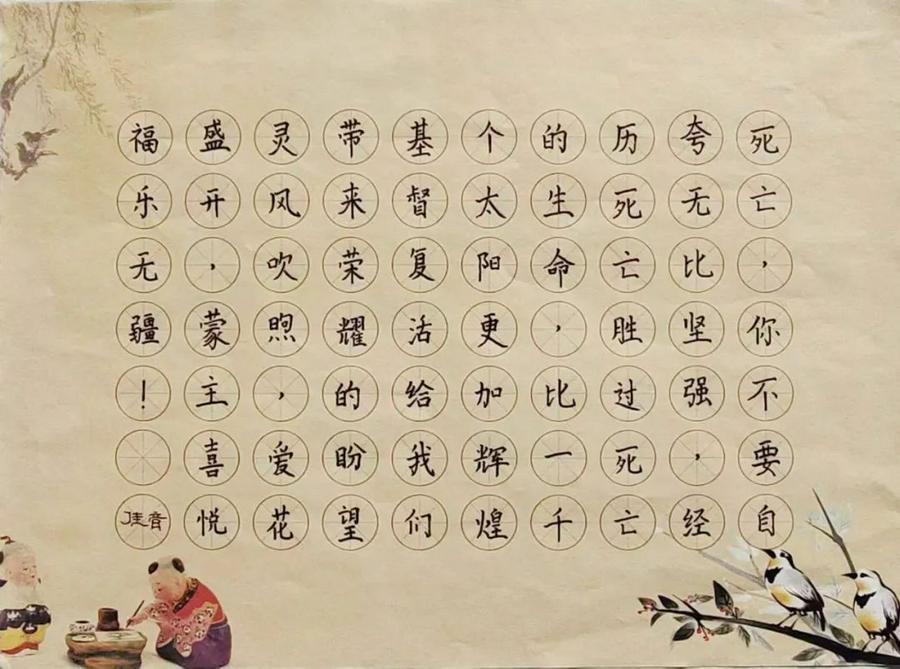 死亡，你不要自
夸无比坚强，经
历死亡胜过死亡
的生命，比一千
个太阳更加辉煌
基督复活给我们
带来荣耀的盼望
灵风吹煦，爱花
盛开，蒙主喜悦
福乐无疆！
佳音